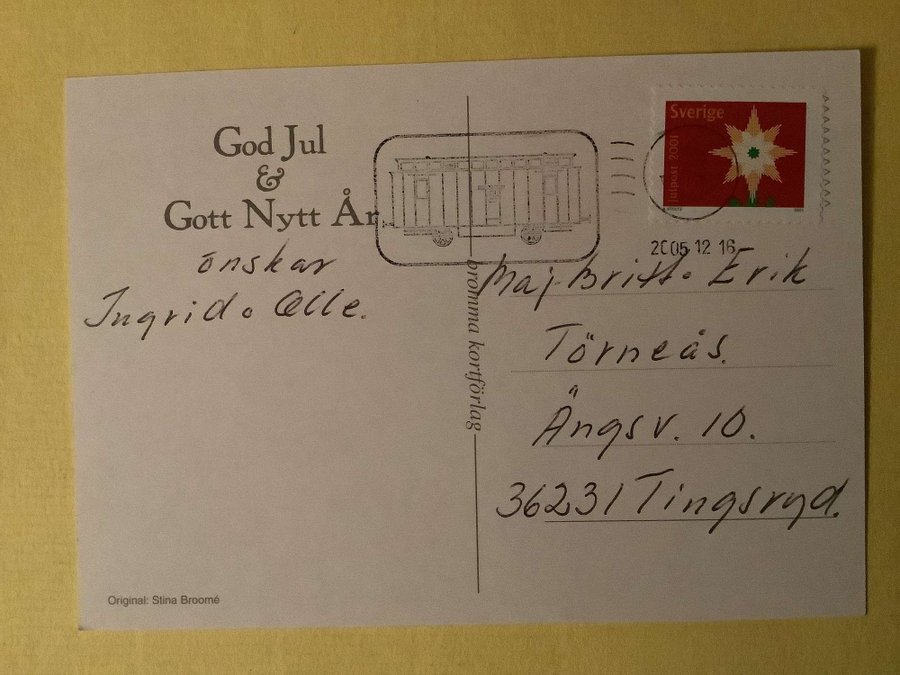 God Jul
&
Gott Nytt År
önskar
Ingrid o Olle.
Original: Stina Broomé
bromma kortförlag
Sverige
julpost 2001
2005 12 16
Maj-Britt o Erik
Törneås.
Ängsv. 10.
36231 Tingsryd.